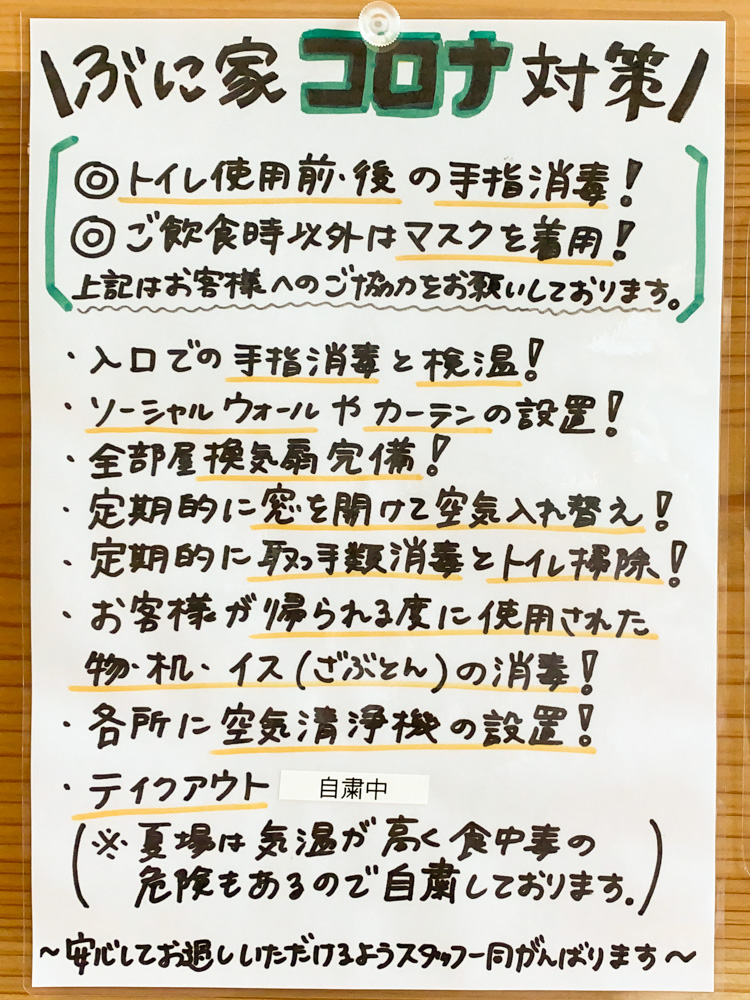 \ぶに家 コロナ 対策/
◎トイレ使用前・後の手指消毒!
◎ご飲食時以外はマスクを着用!
上記はお客様へのご協力をお願いしております。
・入口での手指消毒と検温!
・ソーシャルウォールやカーテンの設置!
・全部屋換気扇完備!
・定期的に窓を開けて空気入れ替え!
・定期的に取っ手類消毒とトイレ掃除!
・お客様が帰られる度に使用された
物・机・イス(ざぶとん)の消毒!
・各所に空気清浄機の設置!
・テイクアウト 自粛中
(※夏場は気温が高く食中毒の
危険もあるので自粛しております。)
~安心してお過しいただけるようスタッフ一同がんばります~